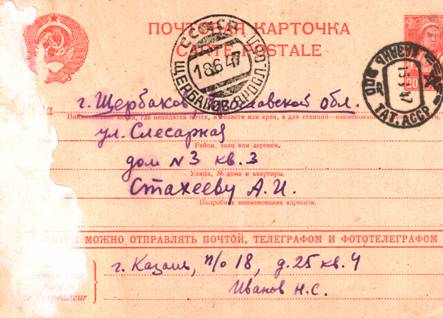 ПОЧТОВАЯ КАРТОЧКА
CARTE POSTALE
СССР
ЩЕРБАКОВ
18647
КАЗАНЬ
ТАТ. АССР
20
г. Щербаков Ярославской обл.
Наименование места, где находится почта, и области или края, а для станций
ул. Слесарная
Район, село или деревня
дом N 3 кв. 3
Улица, № дома и квартиры
Стахееву А.И.
Подробное наименование адресата
МОЖНО ОТПРАВЛЯТЬ ПОЧТОЙ, ТЕЛЕГРАФОМ И ФОТОТЕЛЕГРАФОМ
г. Казань, п/о 18, д. 25 кв. 4
Иванов Н.С.